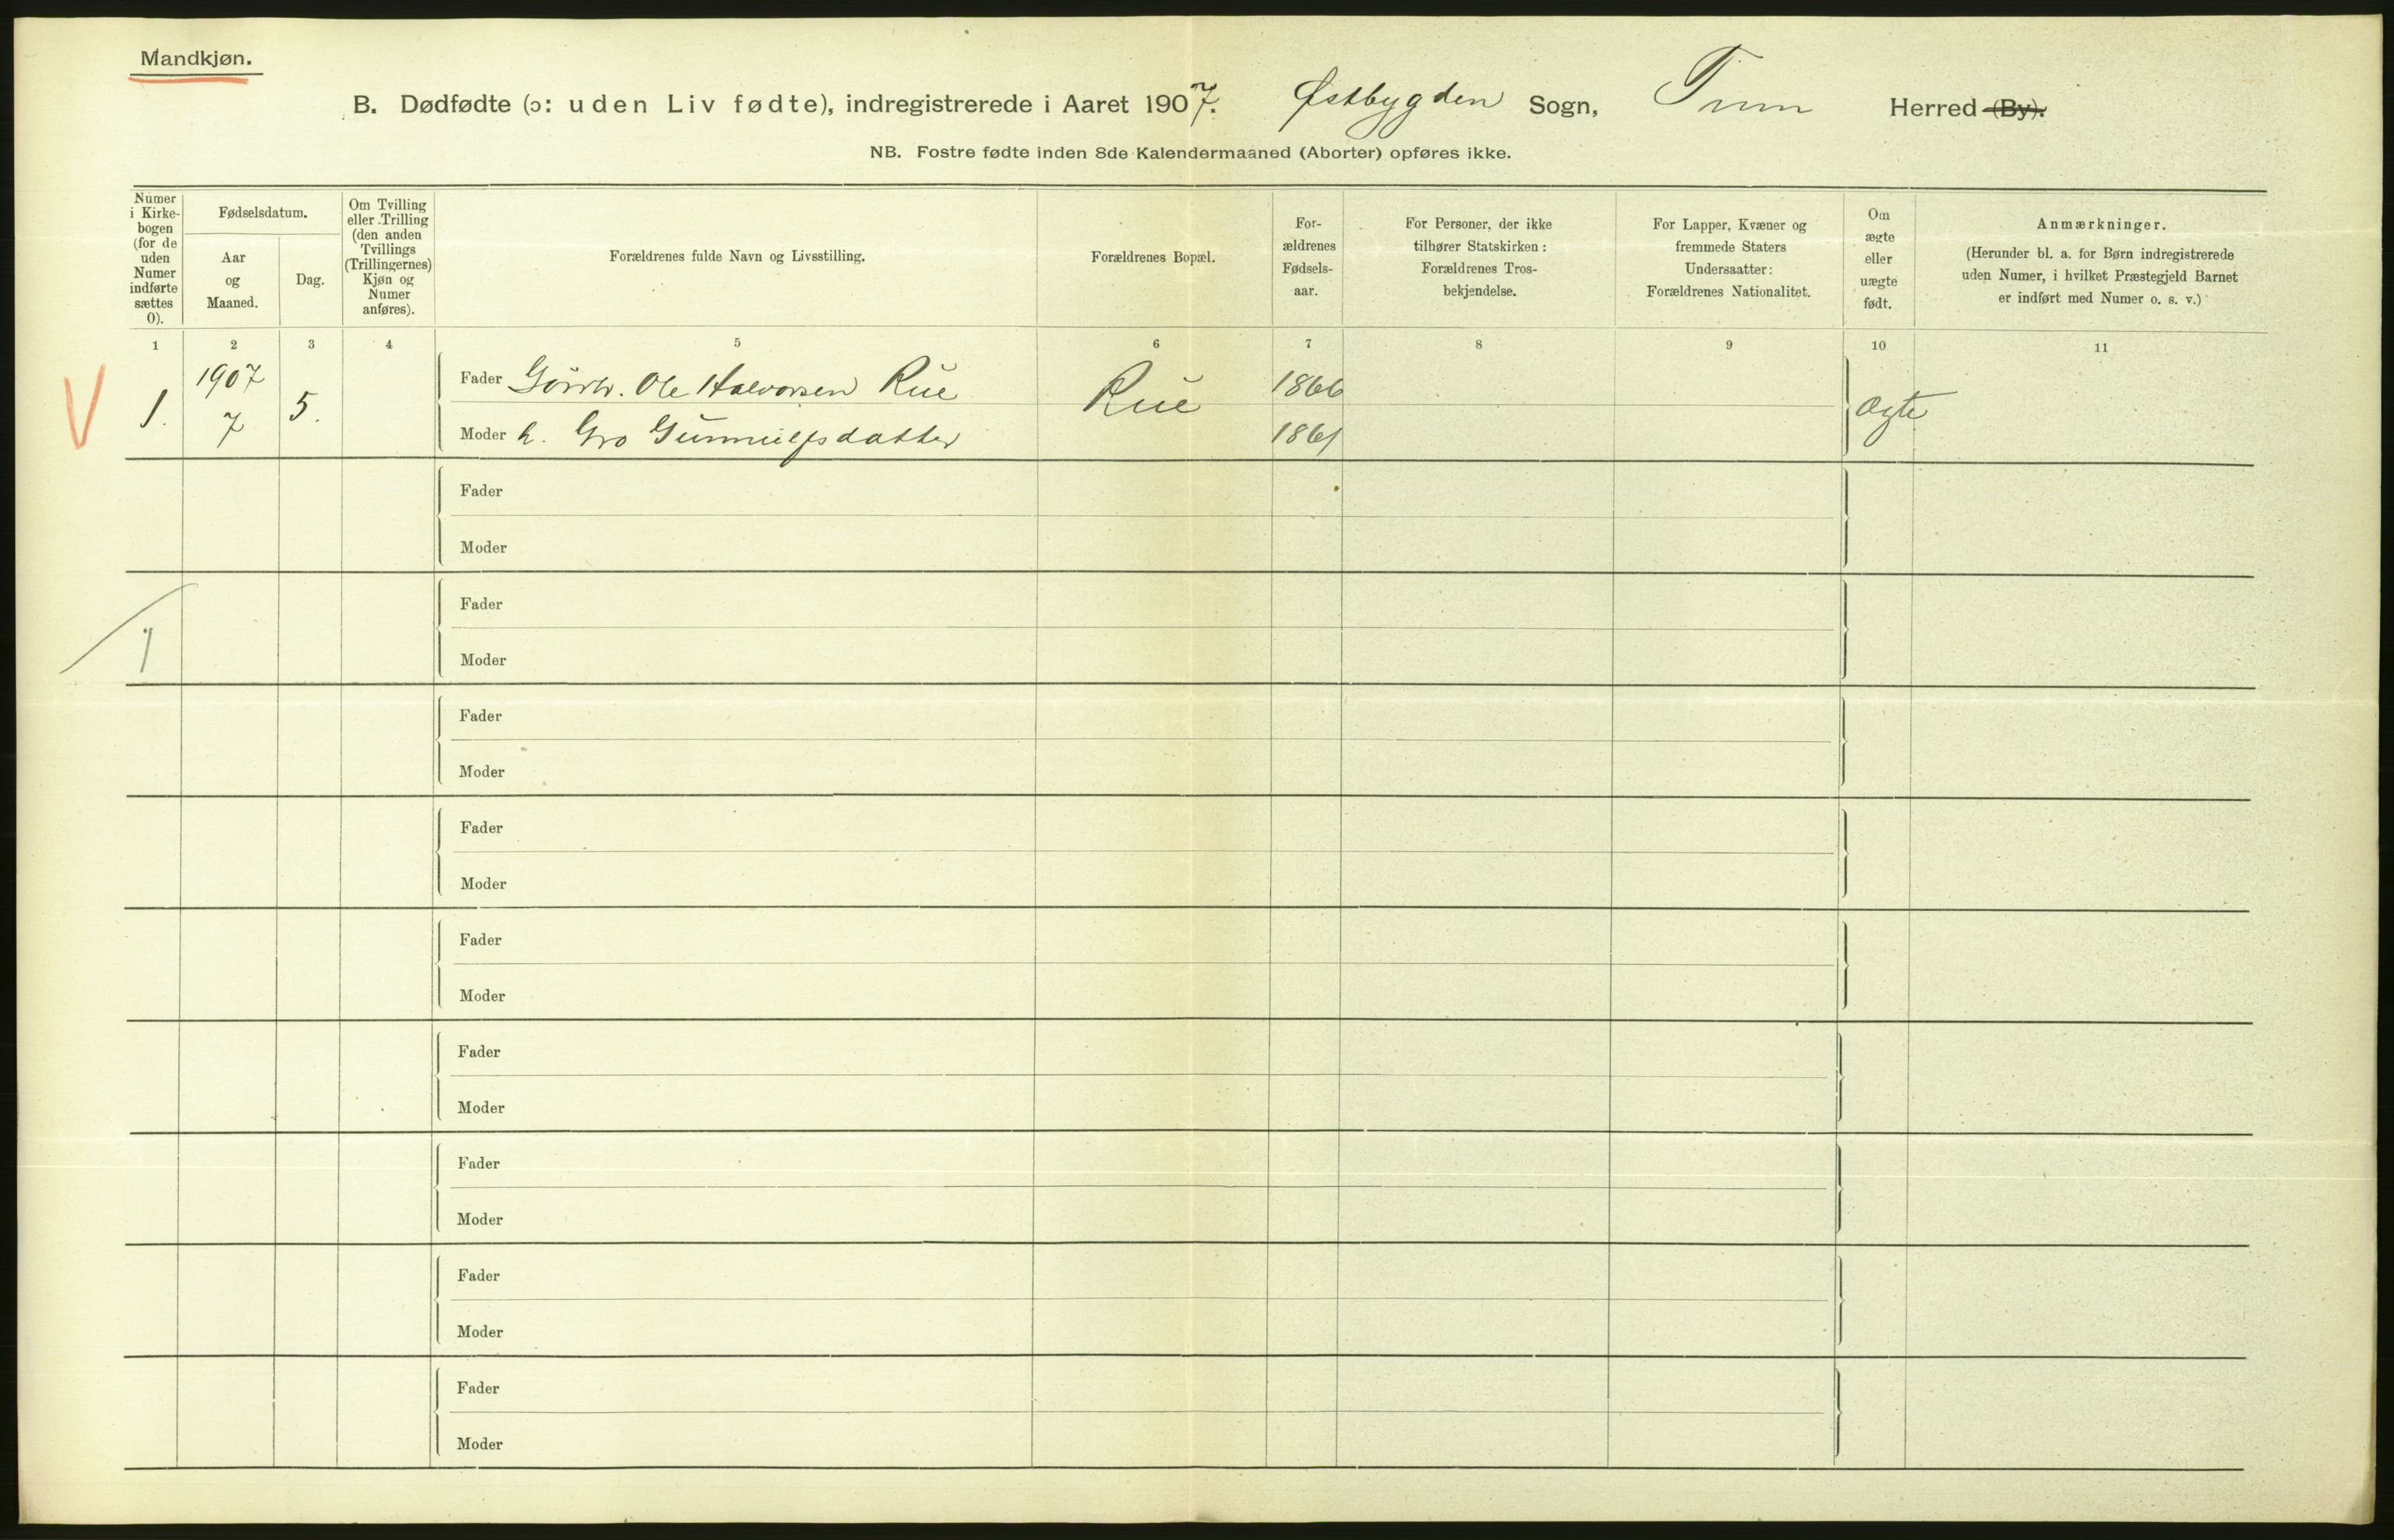 Mandkjøn.
B. Dødfødte (ɔ: uden Liv fødte), indregistrerede i Aaret 1907. Østbygden Sogn, Tinn Herred (By).
NB. Fostre fødte inden 8de Kalendermaaned (Aborter) opføres ikke.
Numer i Kirke-bogen (for de uden Numer indførte sættes 0).
Fødselsdatum.
Aar og Maaned.
Dag.
Om Tvilling eller Trilling (den anden Tvillings (Trillingernes) Kjøn og Numer anføres).
Forældrenes fulde Navn og Livsstilling.
Forældrenes Bopæl.
For-ældrenes Fødsels-aar.
For Personer, der ikke tilhører Statskirken: Forældrenes Tros-bekjendelse.
For Lapper, Kvæner og fremmede Staters Undersaatter: Forældrenes Nationalitet.
Om ægte eller uægte født.
Anmærkninger.
(Herunder bl. a. for Børn indregistrerede uden Numer, i hvilket Præstegjeld Barnet er indført med Numer o. s. v.)
1 2 3 4 5 6 7 8 9 10 11
V 1. 1907 7 5.
Fader Ole Halvorsen Rue Rue 1866 ægte
Moder h. Gro Gunnulfsdatter 1861
Fader
Moder
1
Fader
Moder
Fader
Moder
Fader
Moder
Fader
Moder
Fader
Moder
Fader
Moder
Fader
Moder
Fader
Moder